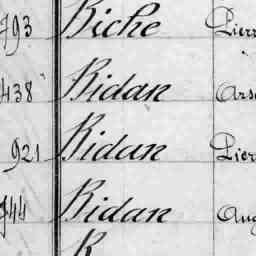 793 Riche Pierr
438 Ridan Arse
921 Ridan Pierr
744 Ridan Aug
R